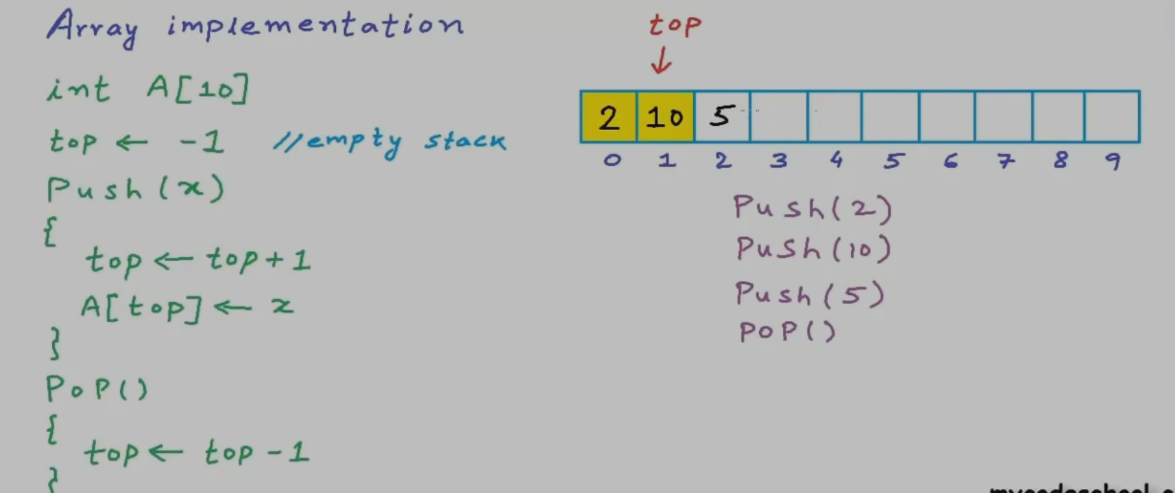 Array implementation
int A[10]
top ← -1 //empty stack
Push(x)
{
top ← top+1
A[top] ← x
}
POP()
{
top ← top -1
}
top
↓
2 10 5
0 1 2 3 4 5 6 7 8 9
Push(2)
Push(10)
Push(5)
POP()